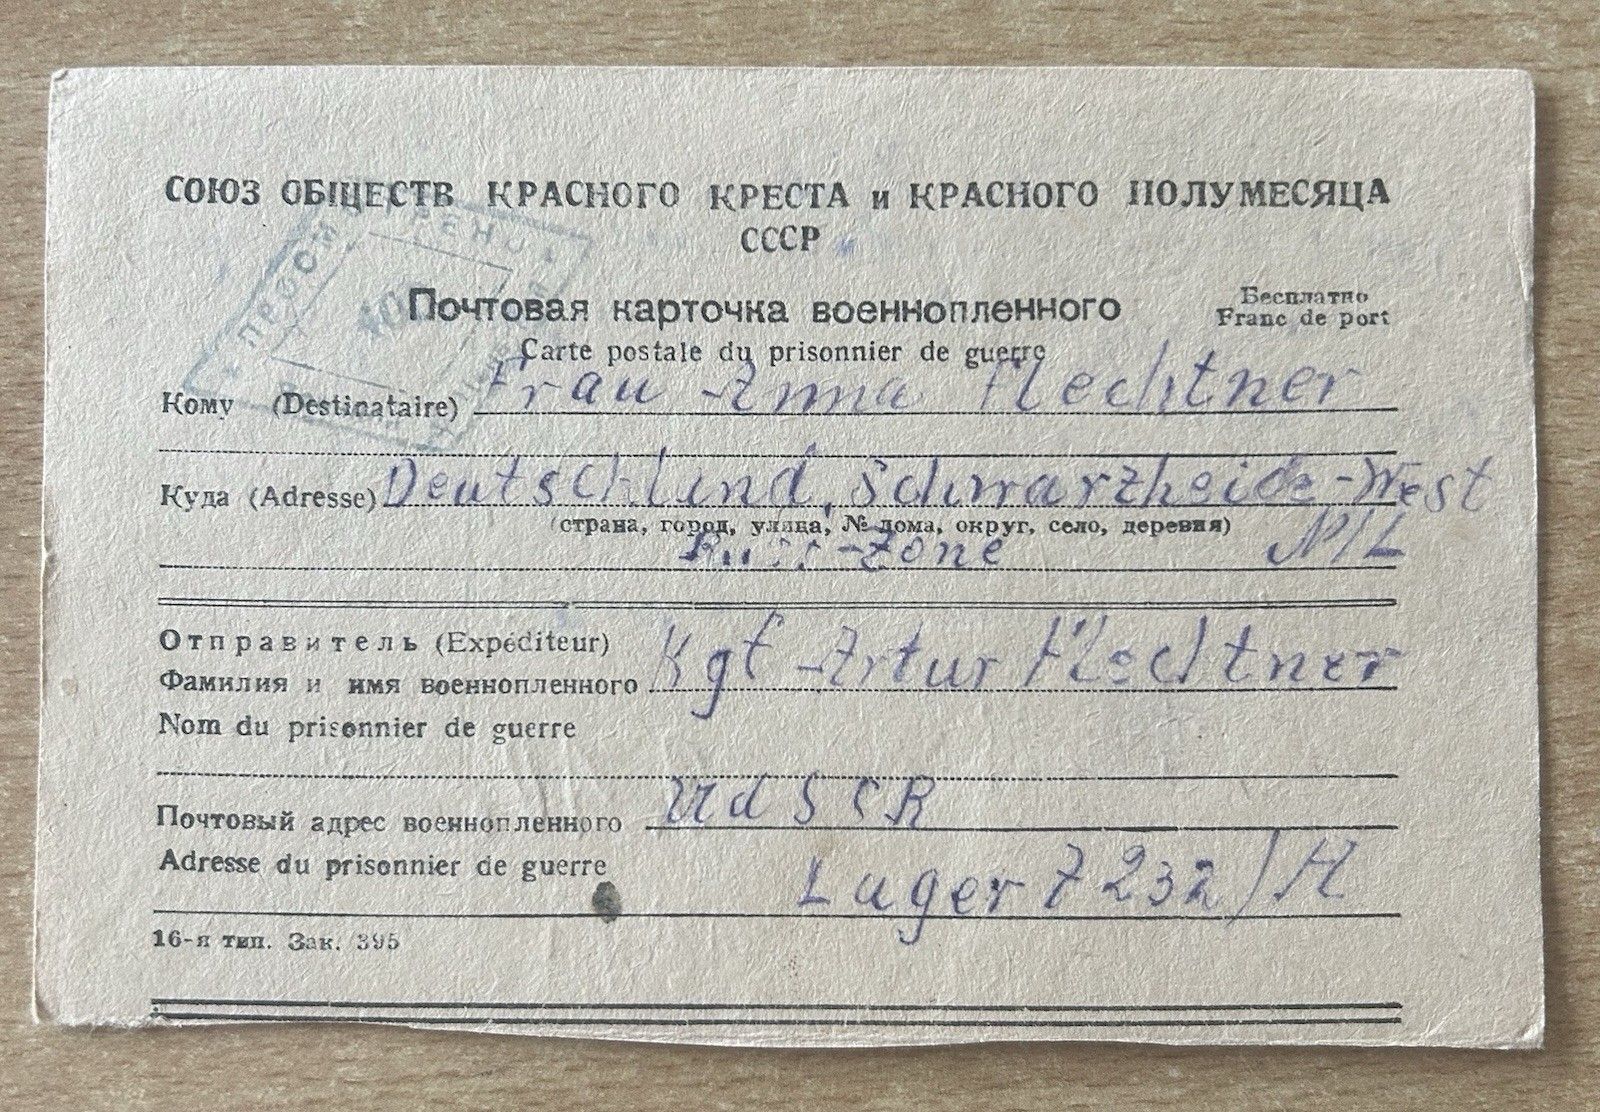 СОЮЗ ОБЩЕСТВ КРАСНОГО КРЕСТА и КРАСНОГО ПОЛУМЕСЯЦА
СССР
Почтовая карточка военнопленного
Бесплатно
Franc de port
Carte postale du prisonnier de guerre
Кому (Destinataire) Frau Anna Flechtner
Куда (Adresse) Deutschland, Schwarzheide-West
(страна, город, улица, № дома, округ, село, деревня)
Russ-Zone N/L
Отправитель (Expéditeur)
Фамилия и имя военнопленного Kgf Artur Flechtner
Nom du prisonnier de guerre
Почтовый адрес военнопленного UdSSR
Adresse du prisonnier de guerre Lager 7232/H
16-я тип. Зак. 395